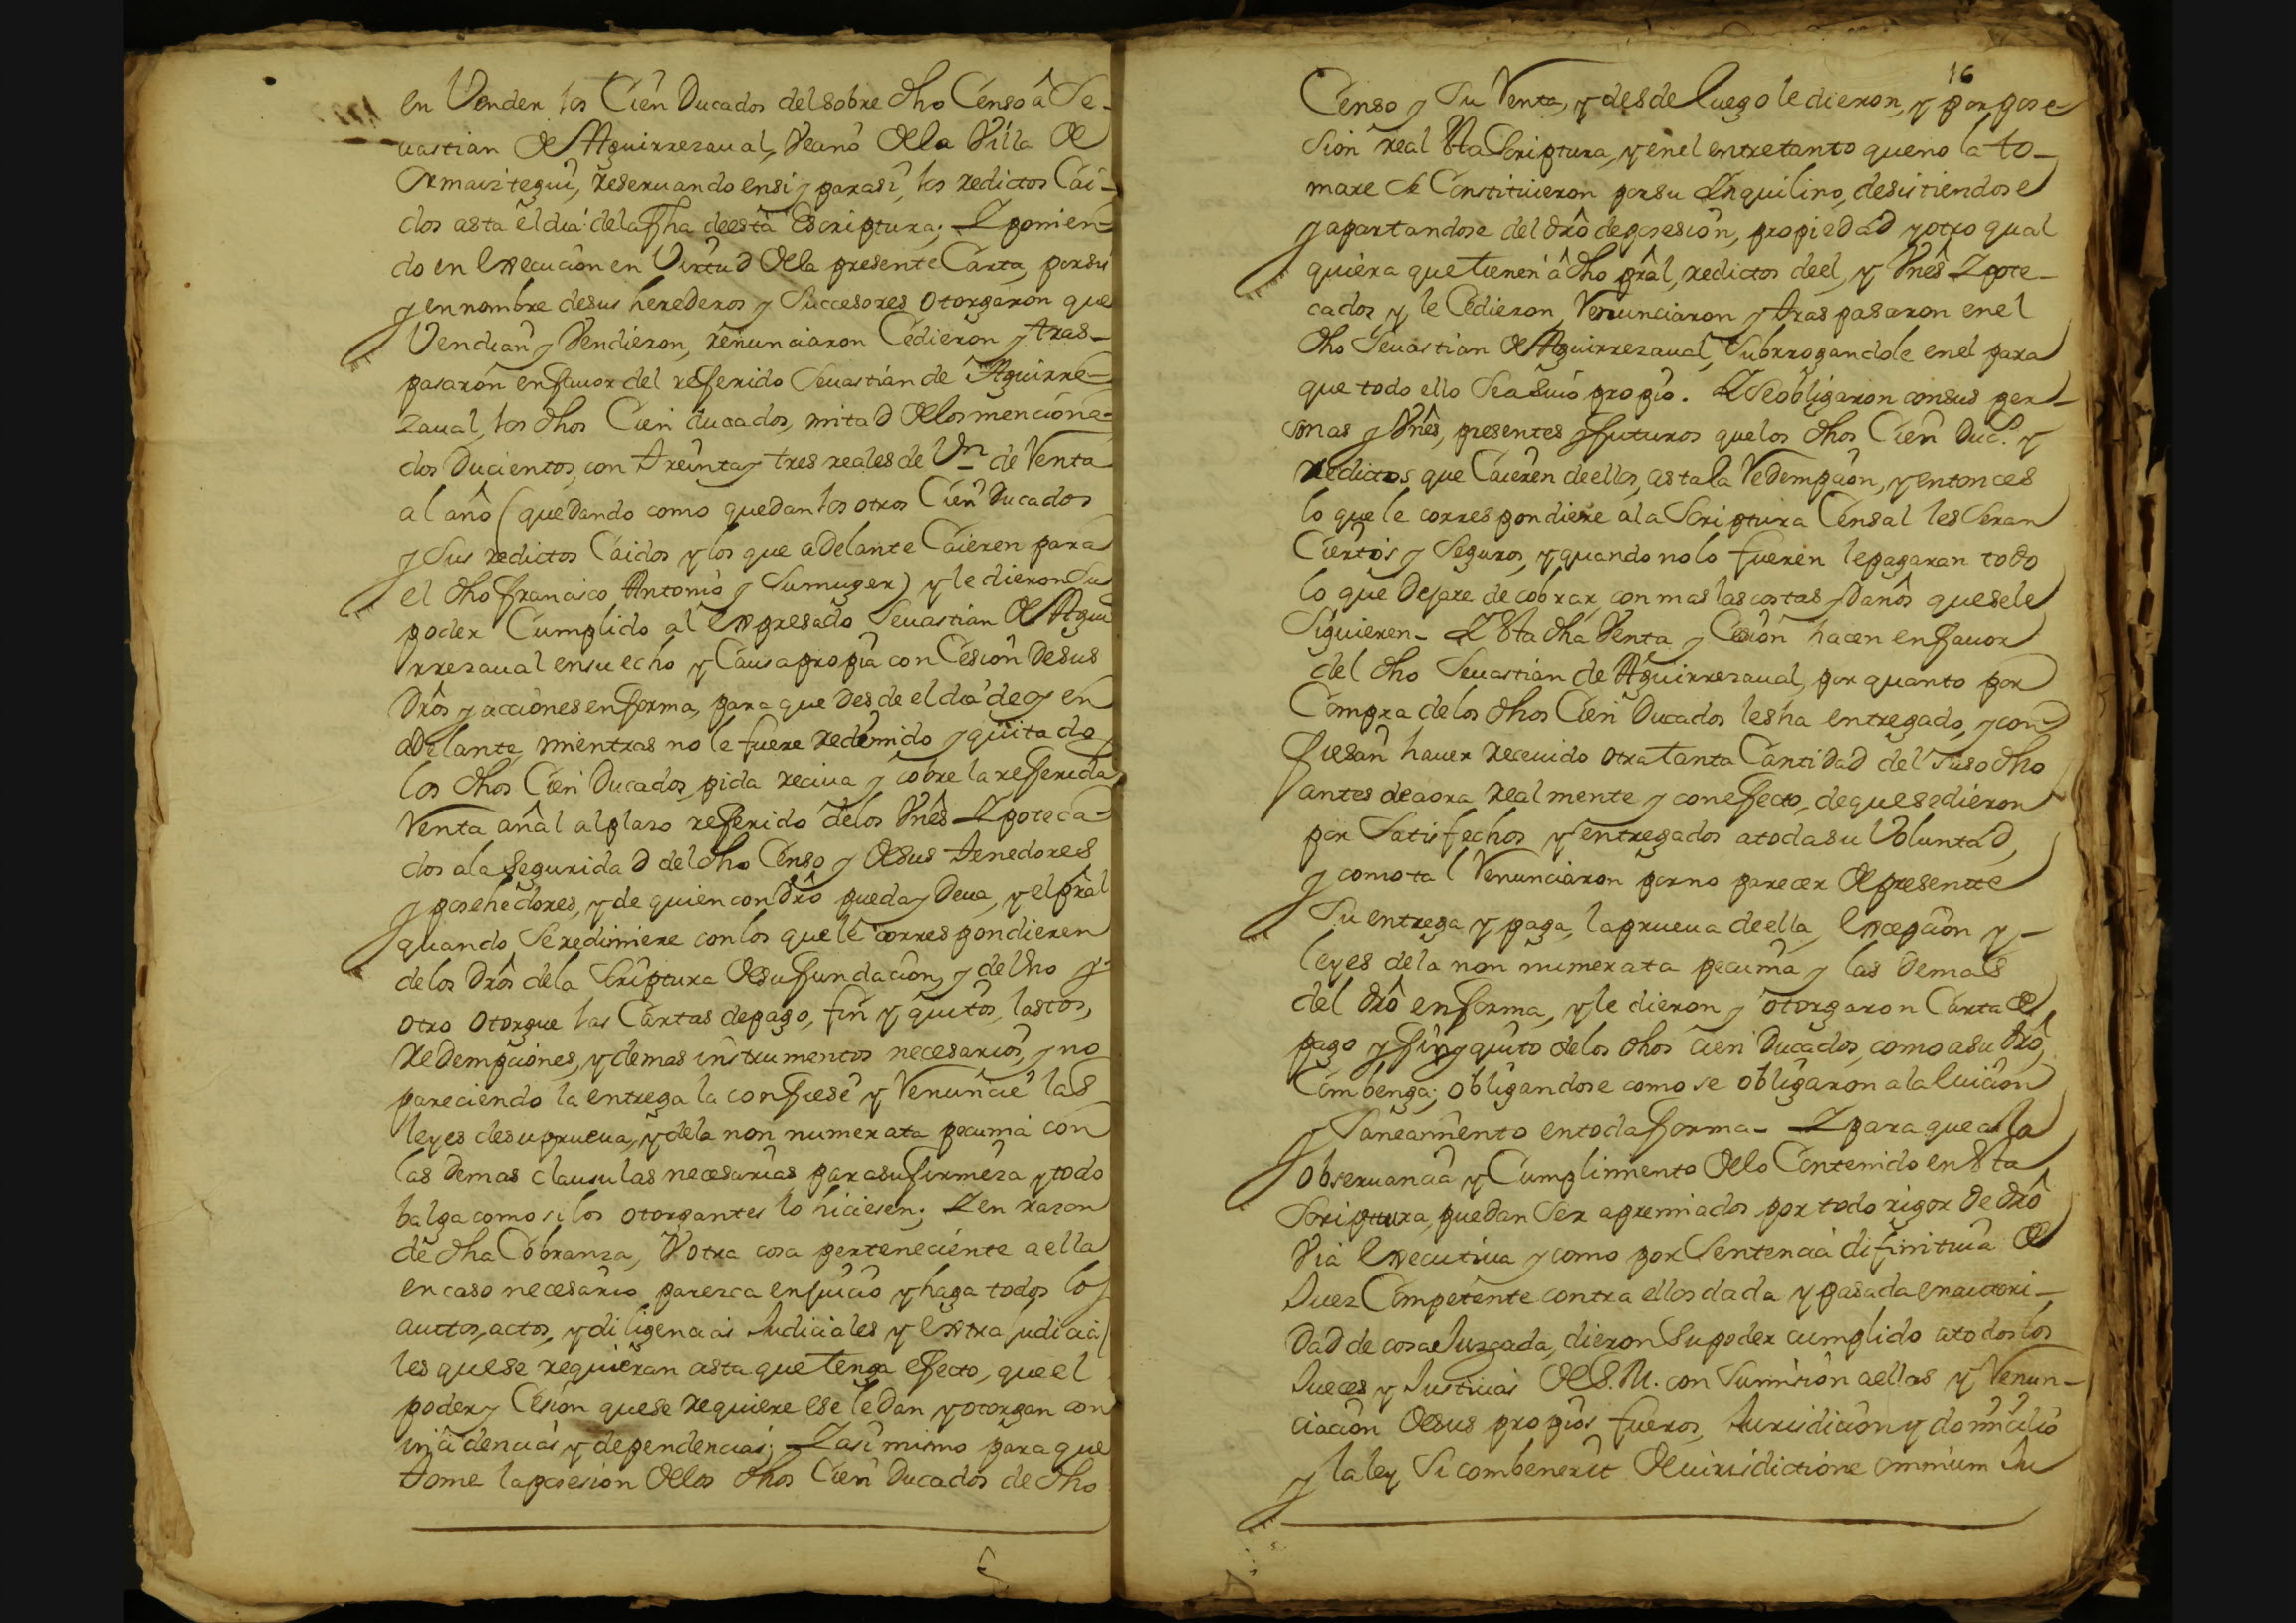 en Vender los Cien Ducados del sobre dho Censo â Se-
uastian de Aguirrezaual, Vezino de la Villa de
Ormaiztegui, reseruando en si y para sî, los redictos Cai-
dos asta el dia de la fha de esta Escriptura; Y ponien-
do en execucion en Virtud de la presente Carta, por si
y en nombre de sus herederos y Succesores otorgaron que
Vendian y Vendieron, renunciaron Cedieron y tras-
pasaron en fauor del referido Seuastian de Aguirre-
zaual, los dhos Cien ducados, mitad de los menciona-
dos Ducientos, con treinta y tres reales de Vn de Renta
al año (quedando como quedan los otros Cien Ducados
y Sus redictos Caidos y los que adelante Caieren para
el dho Francisco Antonio y Su muger) y le dieron Su
poder Cumplido al expresado Seuastian de Agui
rrezaual en su echo y Causa propia con Cesion de sus
drôs y acciones en forma, para que desde el dia de oy en
adelante, mientras no le fuere redemido y quitado
los dhos Cien Ducados, pida reciua y cobre la referida
Renta añal al plazo referido de los Vnês Ypoteca-
dos a la seguridad del dho Censo y de sus tenedores
y posehedores, y de quien con drô pueda y Deua, y el prâl
quando, Se redimiere con los que le correspondieren
de los drôs de la Scriptura de su fundacion, y de Uno y
otro otorgue las Cartas de pago, fin y quitos, lastos,
redempciones, y demas instrumentos necesarios, y no
pareciendo la entrega la confiese y Renuncie las
leyes de su prueua, y de la non numerata pecunia con
las demas clausulas necesarias para su firmeza y todo
balga como si los otorgantes lo hiciesen; Y en razon
de dha Cobranza, V otra cosa perteneciente a ella
en caso necesario, parezca en juicio y haga todos los
auttos, actos, y diligencias Judiciales y extrajudicia
les que se requieran asta que tenga efecto, que el
poder y Cesion que se requiere ese le dan y otorgan con
incidencias y dependencias; Y asi mismo para que
tome la posesion de los dhos Cien Ducados de dho
16
Censo y Su Renta, y desde luego le dieron, y por pose-
sion real esta Scriptura, y en el entretanto que no la to-
mare se Constituieron por su Ynquilino, desistiendose
y apartandose del drô de posesion, propiedad y otro qual
quiera que tienen â dho prâl, redictos de el, y Vnês Ypote-
cados y le Cedieron, Renunciaron y traspasaron en el
dho Seuastian de Aguirrezaual, Subrrogandole en el para
que todo ello Sea suio propio. Y se obligaron con sus per-
sonas y Vnês, presentes y futuros que los dhos Cien Ducs. y
redictos que Caieren de ellos, asta la Redempcion, y entonces
lo que le correspondiere a la Scriptura Censal les Seran
Ciertos y Seguros, y quando no lo fueren le pagaran todo
lo que Dejare de cobrar, con mas las costas y Daños que se le
Siguieren- Y esta dha Venta y Cesion hacen en fauor
del dho Seuastian de Aguirrezaual, por quanto por
Compra de los dhos Cien Ducados les ha entregado, y con
fiesan hauer receuido otra tanta Cantidad del Suso dho
antes de aora realmente y con efecto, de que se dieron
por Satisfechos y entregados a toda su Voluntad,
y como tal Renunciaron por no parecer de presente
Su entrega y paga, la prueua de ella, excepcion y-
leyes de la non numerata pecunia y las demas
del drô en forma, y le dieron y otorgaron Carta de
pago y fin y quito de los dhos cien Ducados, como a su drô
Combenga; obligandose como se obligaron a la luicion
y Saneamiento en toda forma- Y para que a la
obseruancia y Cumplimiento de lo Contenido en esta
Scriptura, puedan Ser apremiados por todo rigor de drô
Via executiua y como por Sentencia difinitiua de
Juez Competente contra ellos dada y pasada en autori-
dad de cosa Juzgada, dieron Su poder cumplido a todos los
Jueces y Justicias de S.M. con Sumision a ellas y Renun-
ciacion de sus propios fueros, Jurisdicion y domicilio
y la ley Si combenerit de iurisdictione omnium Ju